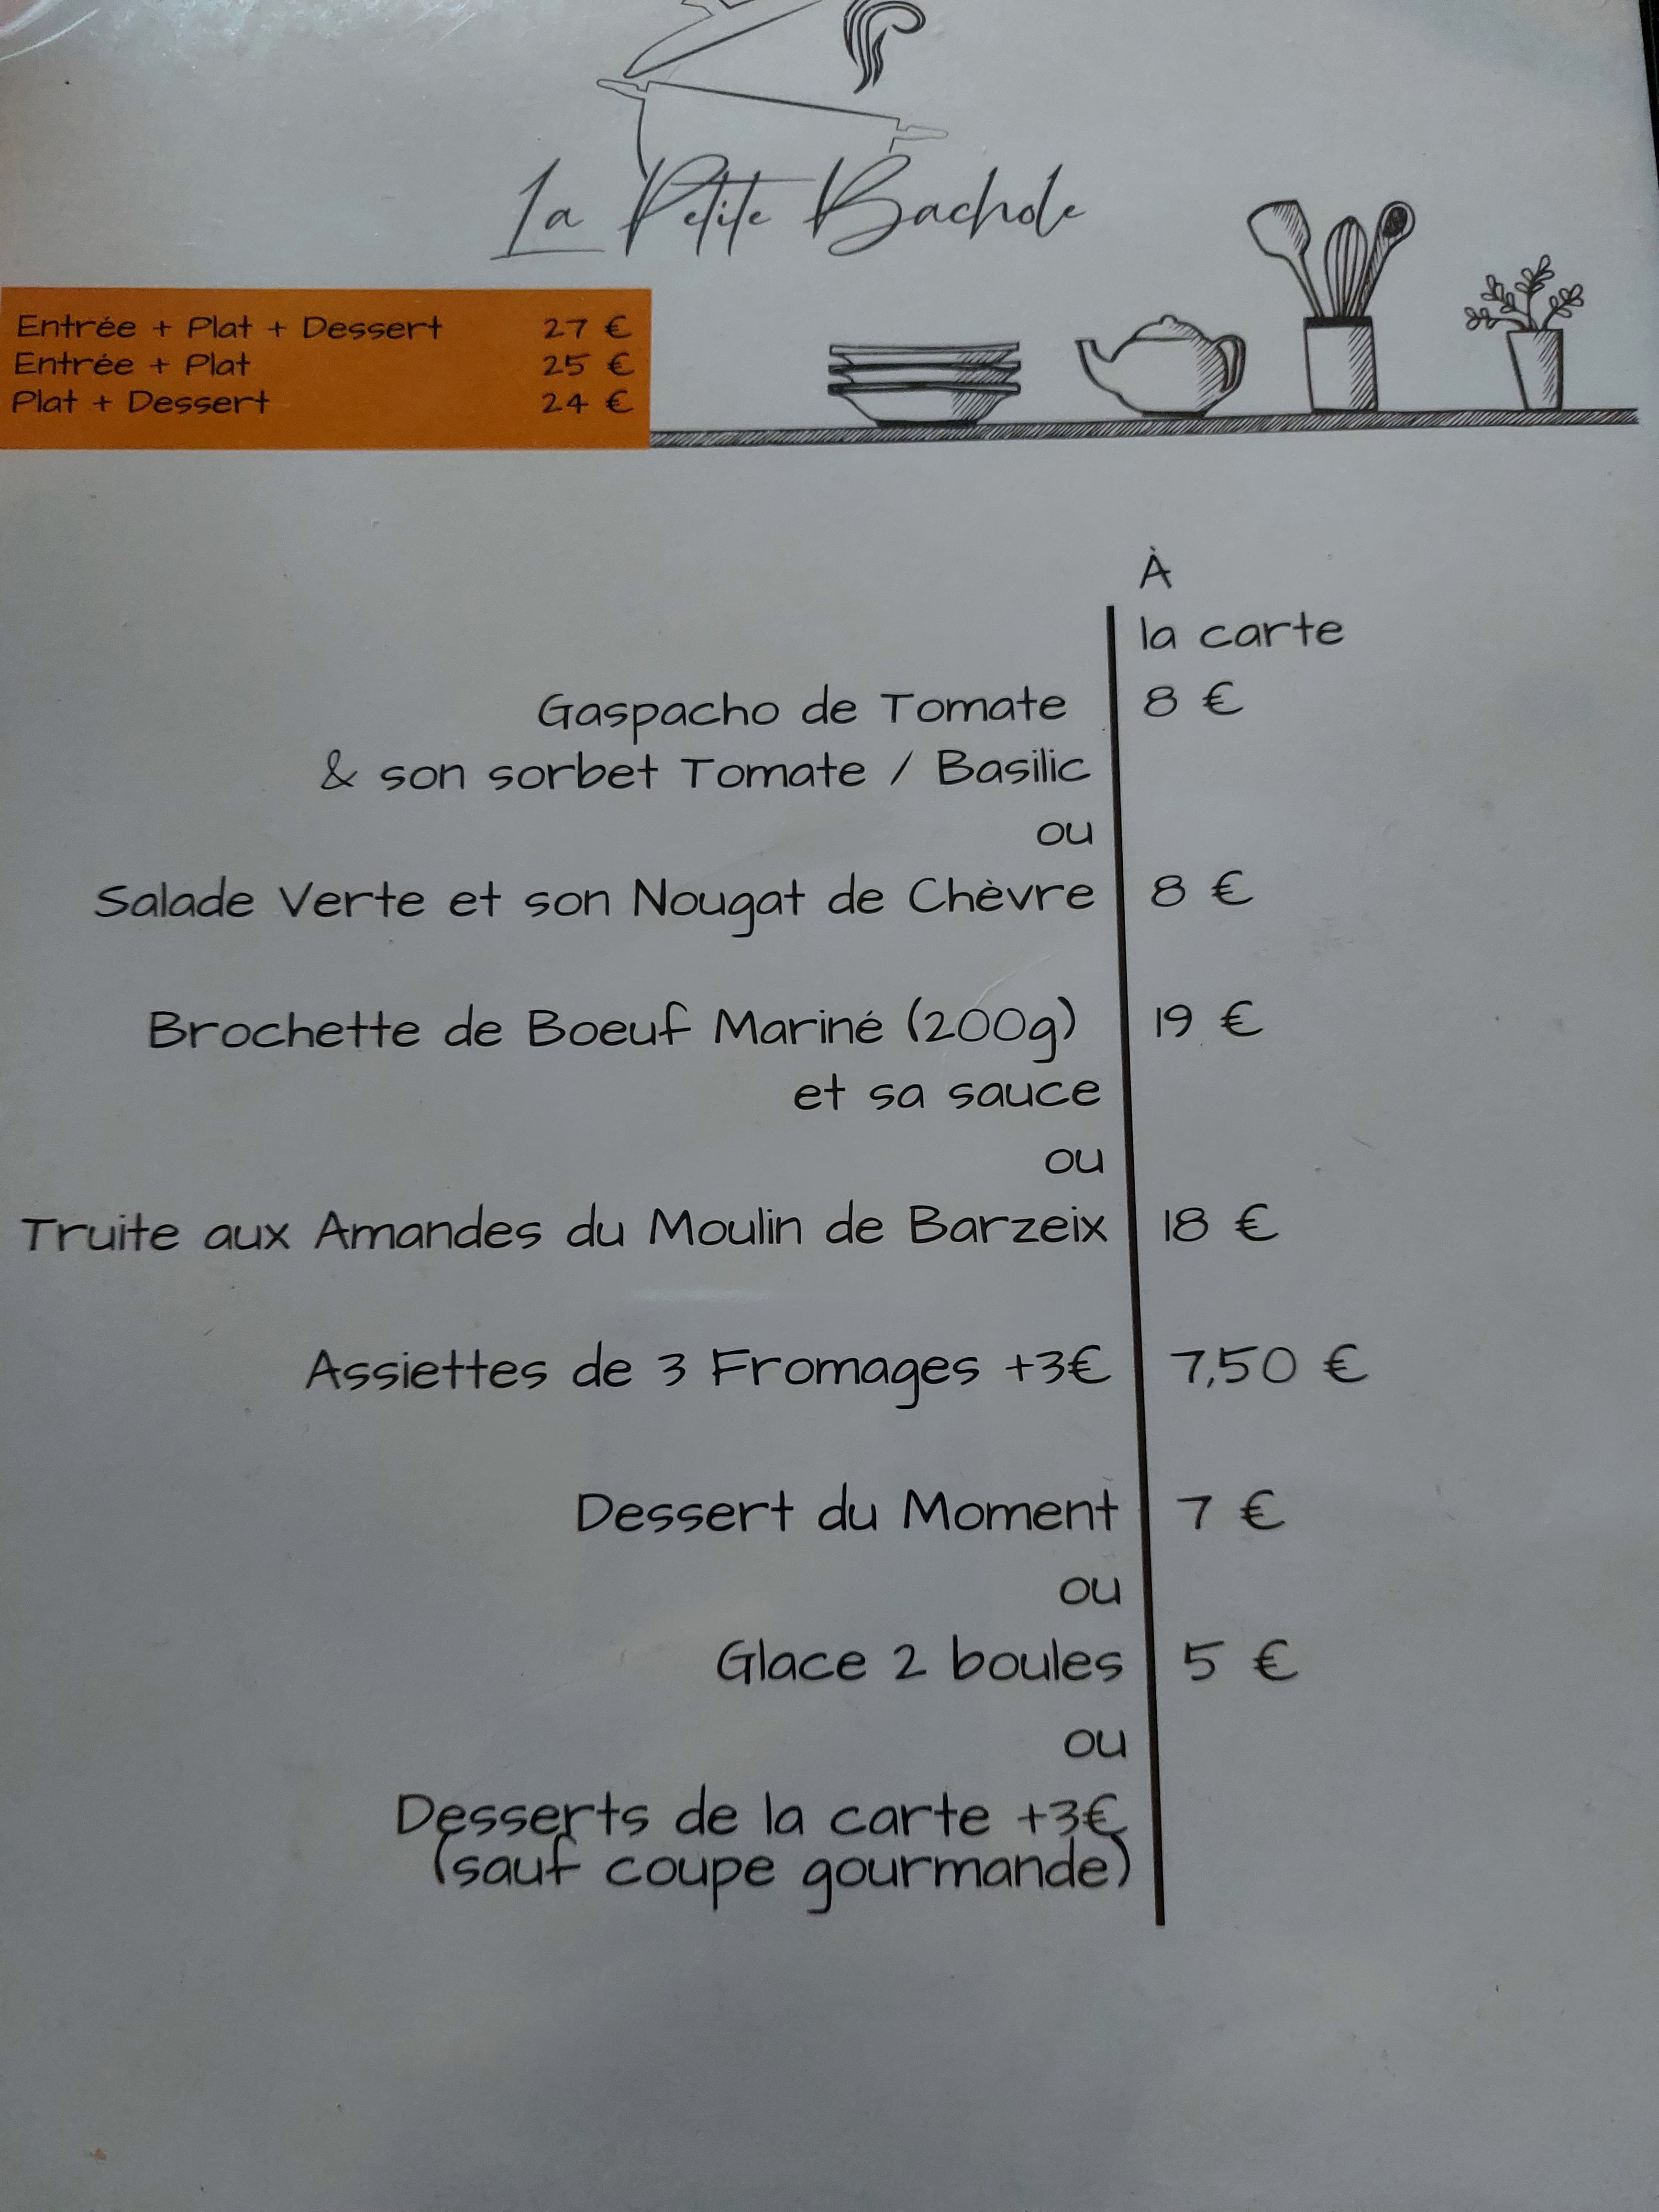 La Petite Bachole
Entrée + Plat + Dessert 27 €
Entrée + Plat 25 €
Plat + Dessert 24 €
À
la carte
Gaspacho de Tomate 8 €
& son sorbet Tomate / Basilic
ou
Salade Verte et son Nougat de Chèvre 8 €
Brochette de Boeuf Mariné (200g) 19 €
et sa sauce
ou
Truite aux Amandes du Moulin de Barzeix 18 €
Assiettes de 3 Fromages +3€ 7,50 €
Dessert du Moment 7 €
ou
Glace 2 boules 5 €
ou
Desserts de la carte +3€
(sauf coupe gourmande)